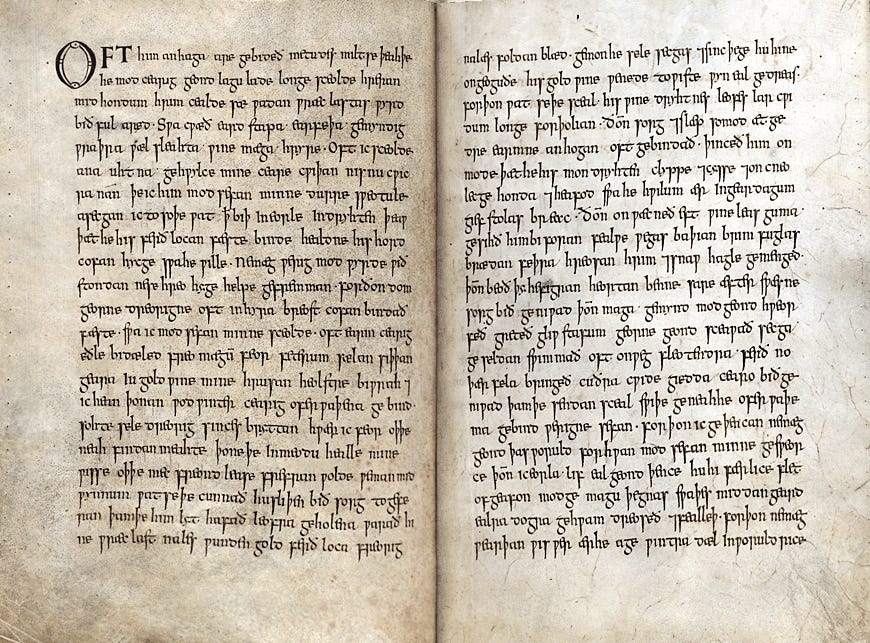 OFT him anhaga are gebideð metudes miltse þeahþe
he mod cearig geond lagu lade longe sceolde hreran
mid hondum hrim cealde sæ ƿadan ƿræc lastas ƿyrd
bið ful aræd · Sƿa cƿæð eard stapa · earfeþa · gemyndig
ƿraþra ƿæl sleahta · ƿine mæga · hryre · Oft ic sceolde
ana · uhtna · gehƿylce mine ceare cƿiþan nis nu cƿic
ra nan̄ · þe ic him mod sefan minne durre sƿeotule
asecgan ic to soþe ƿat · ꝥ biþ in eorle indryhten þeaƿ
þæt he his ferð locan fæste binde healdne his hord
cofan hycge sƿa he ƿille · Ne mæg ƿerig mod ƿyrde ƿið
stondan ne se hreo hyge helpe gefremman · forðon dom
georne dreorigne oft in hyra breost cofan bindað
fæste · sƿa ic mod sefan minne sceolde · oft earm cearig
eðle bidæled freo magū feor feterum sælan siþþan
geara iu gold ƿine mine hrusan heolstre biƿrah ⁊
ic hean þonan ƿod ƿinter cearig ofer ƿaþena ge bind ·
sohte sele dreorig sinces bryttan hƿær ic feor oþþe
neah findan meahte þone þe in meodu healle mine
ƿisse oþþe mec freond leasne frefran ƿolde ƿeman mid
ƿynnum ƿat se þe cunnað hu sliþen bið sorg to gefe
ran þamþe him lyt hafað leofra geholena ƿarað hi
ne ƿræc last nales ƿunden gold ferð loca freorig
nalæs foldan blæd · gemon he sele secgas ⁊ sinc þege hu hine
on geoguðe his gold ƿine ƿenede to ƿiste ƿyn eal gedreas ·
forþon ƿat se þe sceal · his ƿine dryhtnes leofes lar cƿi
dum longe forþolian · ðoñ sorg ⁊ slæp somod æt gæ
dre earmne anhogan oft gebindað · þinceð him on
mode þæt he his mon dryhten clyppe ⁊ cysse ⁊ on cneo
lecge honda ⁊ heafod sƿa he hƿilum ær in geardagum
gief stolas breac · ðoñ on ƿæcneð eft ƿine leas guma ·
gesihð him biforan fealƿe ƿegas baþian brim fuglas
brædan feþra hreosan hrim ⁊ snaƿ hagle gemenged ·
þoñ beoð þy hefigran heortan benne sare æfter sƿæsne
sorg bið geniƿad þoñ maga gemynd mod geond hƿeor
feð greteð gliƿ stafum georne geond sceaƿað secga
ge seldan sƿimmað oft on ƿeg fleotendra ferð no
þær fela bringeð cuðra cƿide giedda cearo bið ge
niƿad þamþe sendan sceal sƿiþe geneahhe ofer ƿaþe
ma gebind ƿerigne sefan · forþon ic ge þencan ne mæg
geond þas ƿoruld for hƿan mod sefan minne gesƿeor
ce þoñ ic eorla lif eal geond þence hu hi færlice flet
ofgeafon modge magu þegnas sƿa þes middan geard
ealra dogra gehƿam dreoseð ⁊ fealleþ · forþon ne mæg
ƿearþan ƿis ƿer ær he age ƿintra dæl in ƿoruld rice